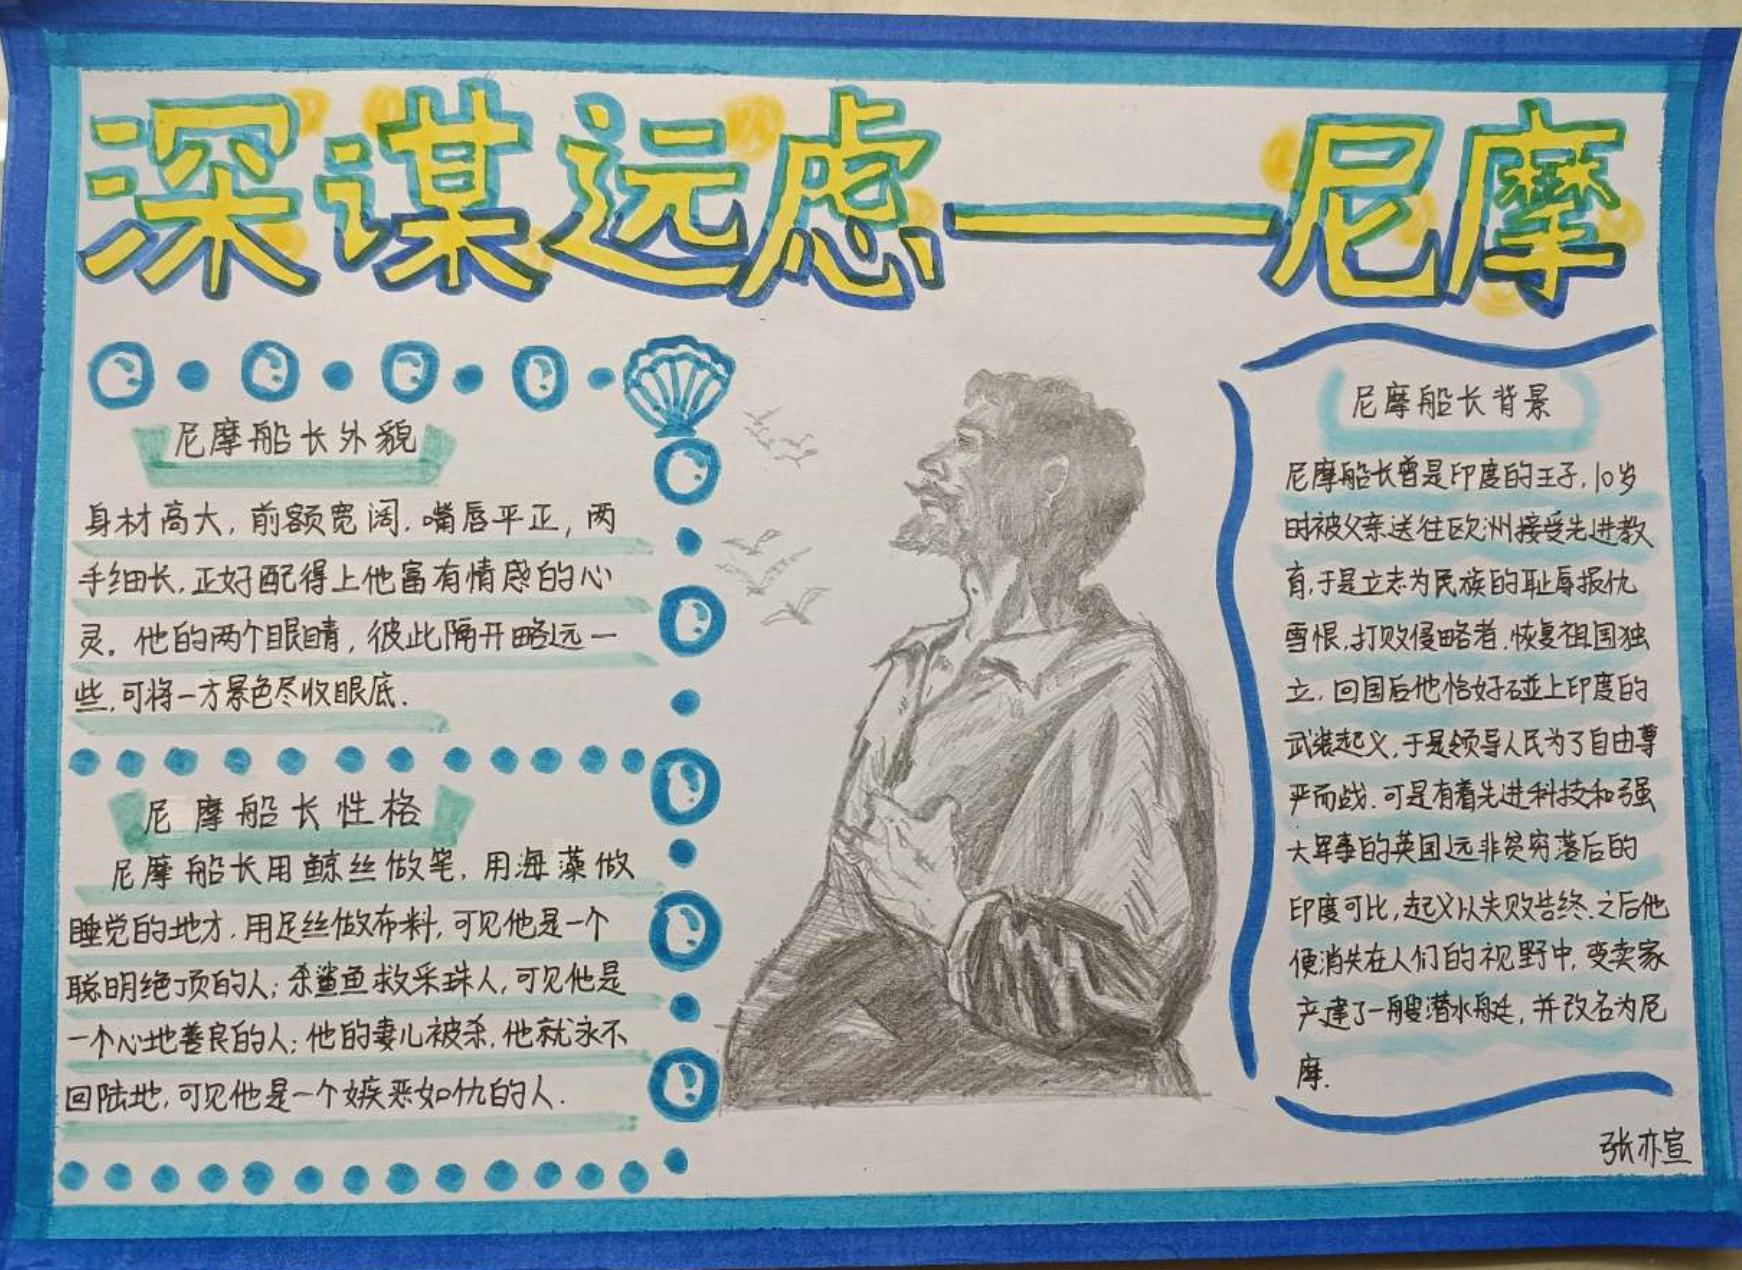 深谋远虑——尼摩
尼摩船长外貌
身材高大，前额宽阔，嘴唇平正，两
手细长，正好配得上他富有情感的心
灵。他的两个眼睛，彼此隔开略远一
些，可将一方景色尽收眼底.
尼摩船长性格
尼摩船长用鲸丝做笔，用海藻做
睡觉的地方，用足丝做布料，可见他是一个
聪明绝顶的人；杀鲨鱼救采珠人，可见他是
一个心地善良的人；他的妻儿被杀，他就永不
回陆地，可见他是一个嫉恶如仇的人.
尼摩船长背景
尼摩船长曾是印度的王子，10岁
时被父亲送往欧洲接受先进教
育，于是立志为民族的耻辱报仇
雪恨，打败侵略者，恢复祖国独
立，回国后他恰好碰上印度的
武装起义，于是领导人民为了自由尊
严而战，可是有着先进科技和强
大军事的英国远非贫穷落后的
印度可比，起义以失败告终，之后他
便消失在人们的视野中，变卖家
产建了一艘潜水艇，并改名为尼
摩.
张亦宣